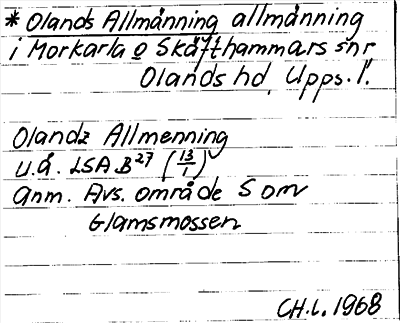 * Olands Allmänning allmänning
i Morkarla o Skäfthammars snr
Olands hd, Upps. l.
Olandz Allmenning
u.å. LSA B27 (13/1)
Anm. Avs. område S om
Glamsmossen
CH.L. 1968